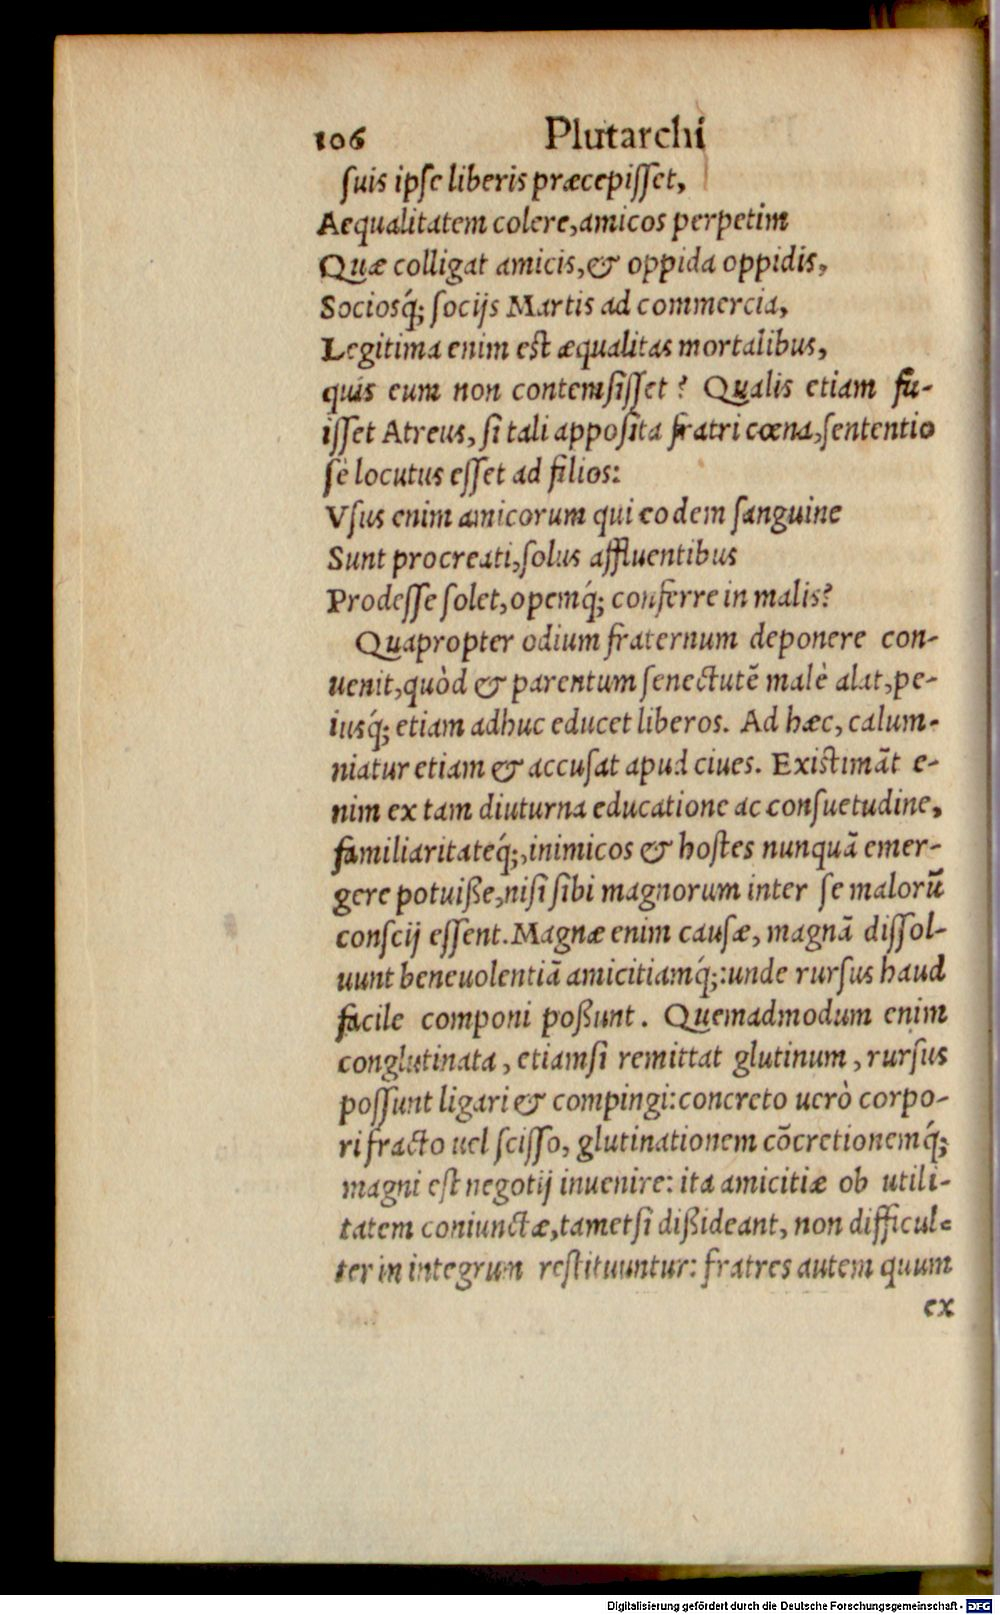 106 Plutarchi
ſuis ipſe liberis præcepiſſet,
Aequalitatem colere, amicos perpetim
Quæ colligat amicis, & oppida oppidis,
Sociosq́; ſocijs Martis ad commercia,
Legitima enim eſt æqualitas mortalibus,
quis eum non contemſiſſet? Qualis etiam fu-
iſſet Atreus, ſi tali appoſita fratri cœna, ſententio
ſè locutus eſſet ad filios:
Vſus enim amicorum qui eodem ſanguine
Sunt procreati, ſolus affluentibus
Prodeſſe ſolet, opemq́; conferre in malis?
Quapropter odium fraternum deponere con-
uenit, quòd & parentum ſenectutē malè alat, pe-
iusq́; etiam adhuc educet liberos. Ad hæc, calum-
niatur etiam & accuſat apud ciues. Exiſtimāt e-
nim ex tam diuturna educatione ac conſuetudine,
familiaritateq́;, inimicos & hoſtes nunquā emer-
gere potuiße, niſi ſibi magnorum inter ſe malorū
conſcij eſſent. Magnæ enim cauſæ, magnā diſſol-
uunt beneuolentiā amicitiamq́;: unde rurſus haud
facile componi poßunt. Quemadmodum enim
conglutinata, etiamſi remittat glutinum, rurſus
poſſunt ligari & compingi: concreto uerò corpo-
ri fracto uel ſciſſo, glutinationem cōcretionemq́;
magni eſt negotij inuenire: ita amicitiæ ob utili-
tatem coniunctæ, tametſi dißideant, non difficul-
ter in integrum reſtituuntur: fratres autem quum
ex
Digitalisierung gefördert durch die Deutsche Forschungsgemeinschaft - DFG